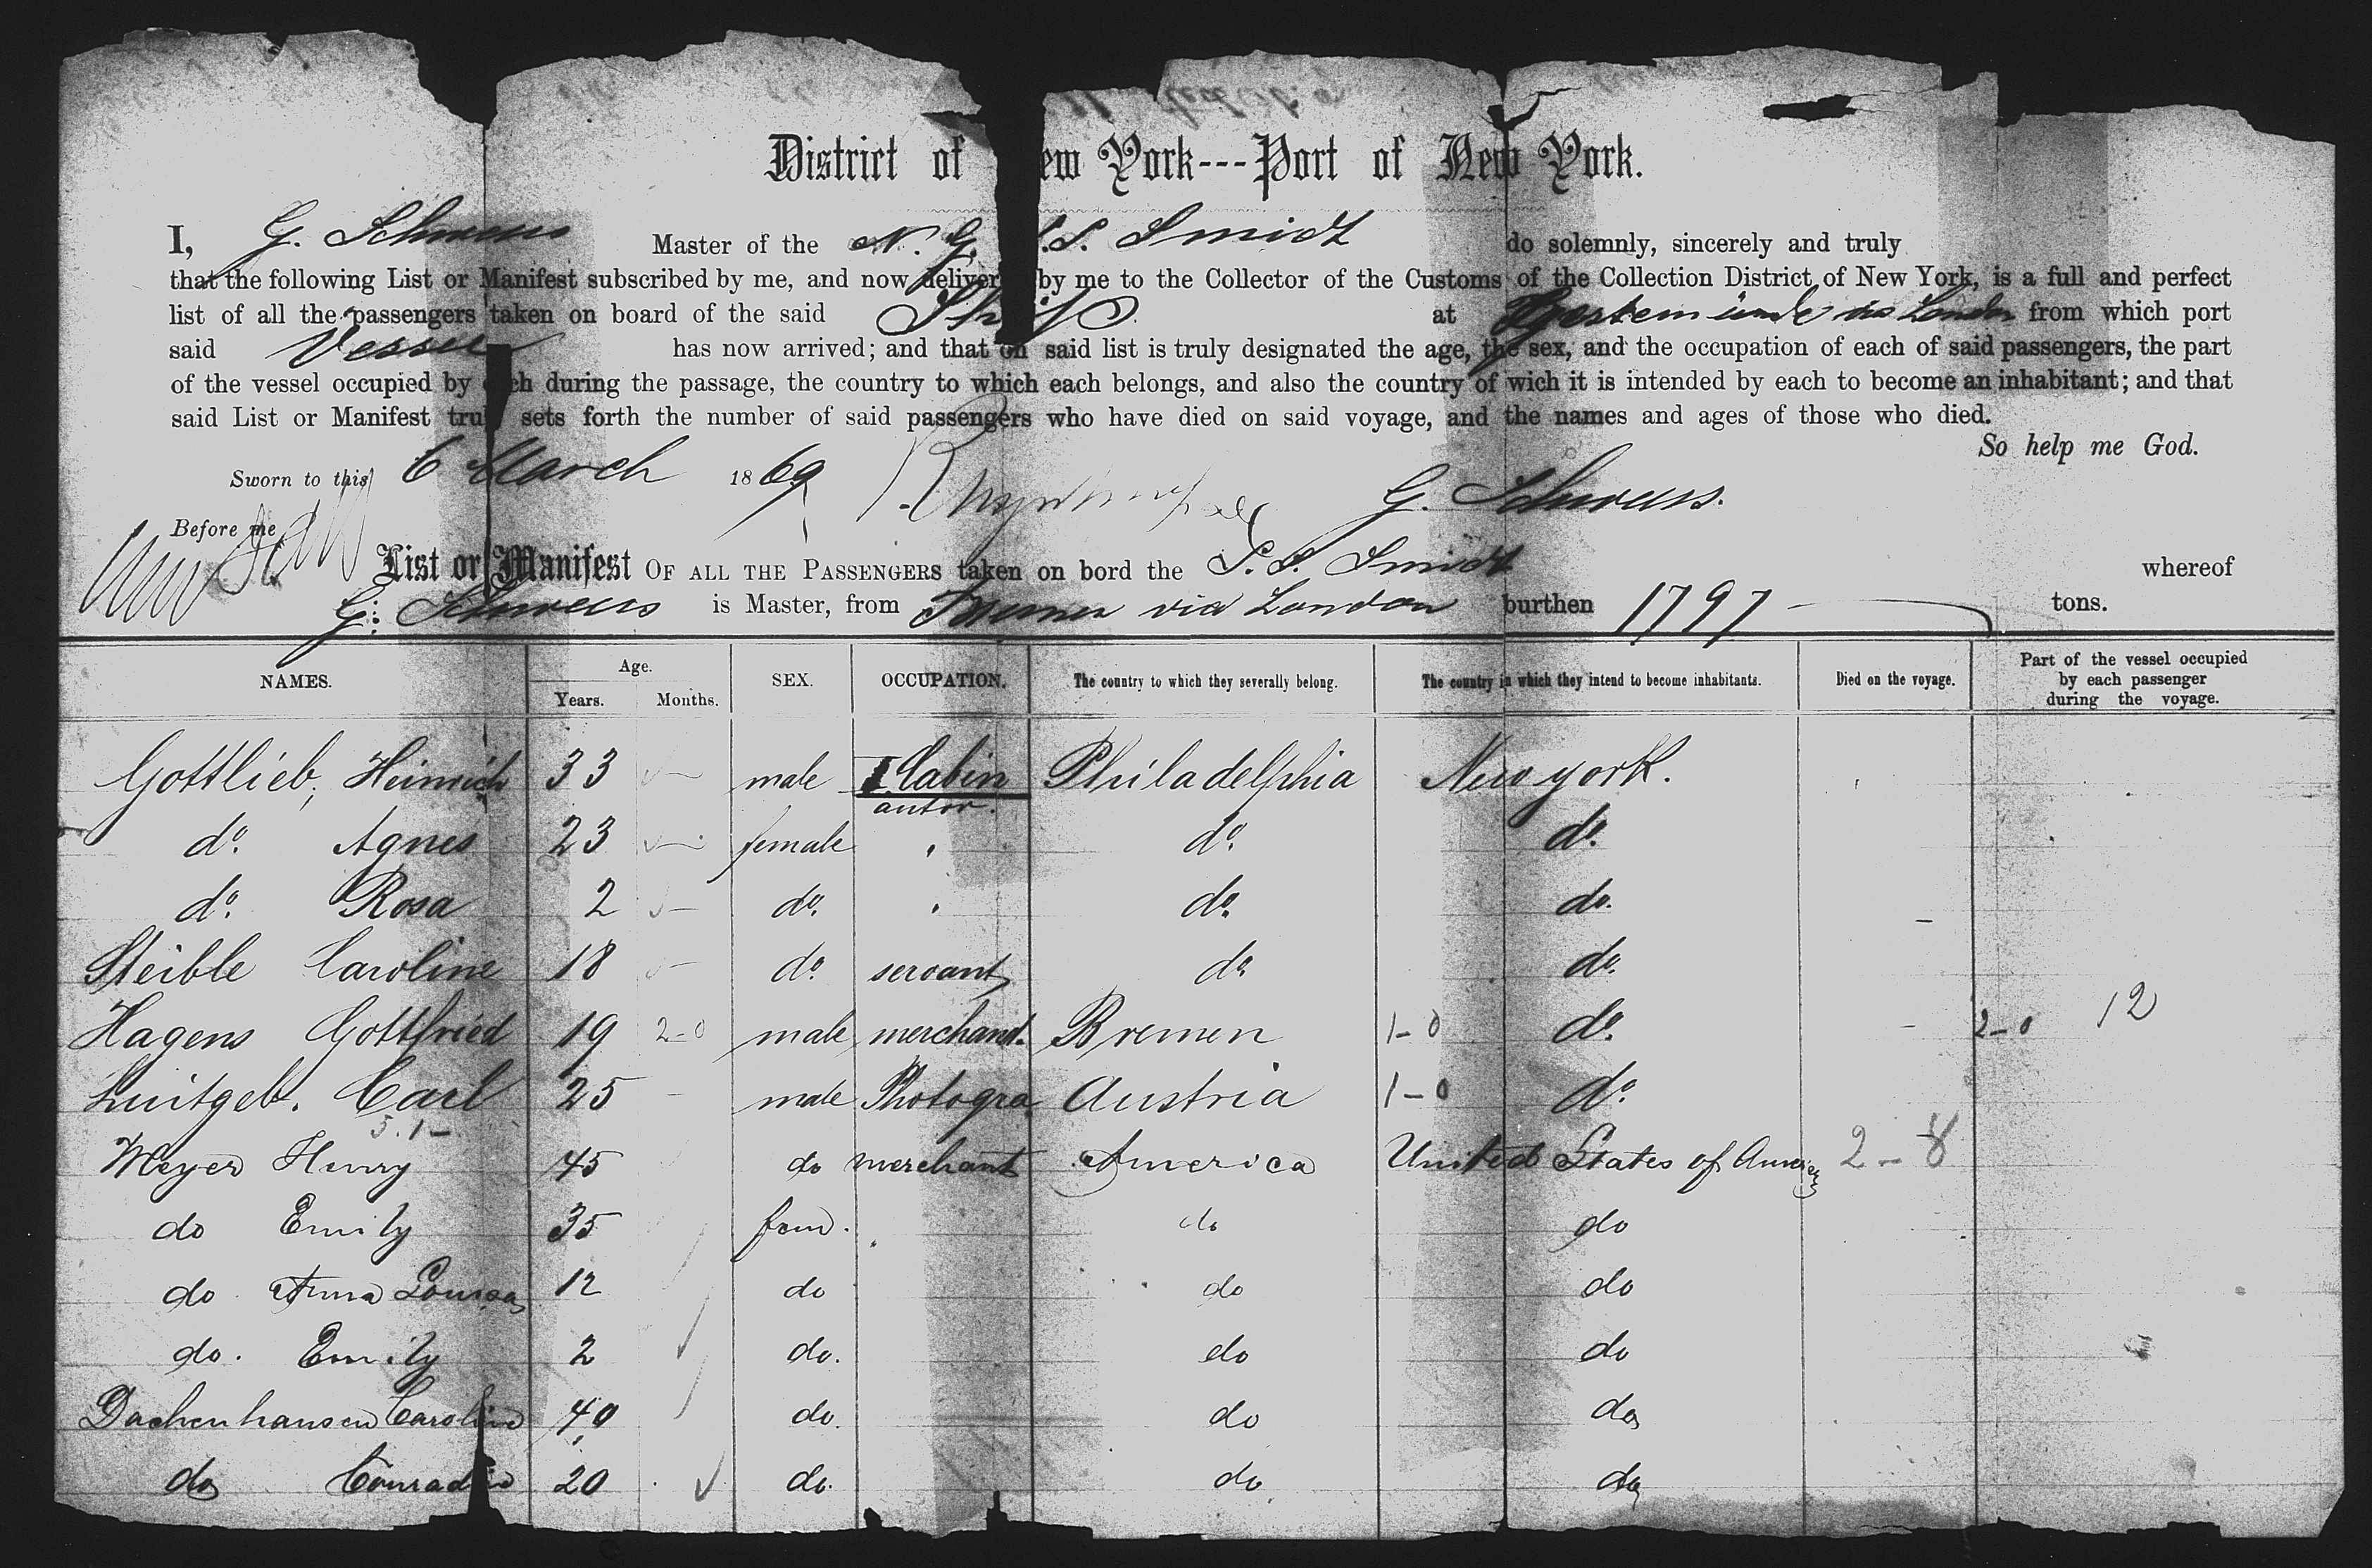 District of ew York---Port of New York.
I, G. Master of the N. G. S. S. Smidt do solemnly, sincerely and truly
that the following List or Manifest subscribed by me, and now deliver by me to the Collector of the Customs of the Collection District of New York, is a full and perfect
list of all the passengers taken on board of the said Ship at via London from which port
said Vessel has now arrived; and that on said list is truly designated the age, the sex, and the occupation of each of said passengers, the part
of the vessel occupied by each during the passage, the country to which each belongs, and also the country of wich it is intended by each to become an inhabitant; and that
said List or Manifest truly sets forth the number of said passengers who have died on said voyage, and the names and ages of those who died.
So help me God.
Sworn to this 6 March 1869 G.
Before me
List or Manifest OF ALL THE PASSENGERS taken on bord the S. S. Smidt whereof
G. is Master, from Bremen via London burthen 1797 tons.
NAMES. Age. Years. Months. SEX. OCCUPATION. The country to which they severally belong. The country in which they intend to become inhabitants. Died on the voyage. Part of the vessel occupied by each passenger during the voyage.
Gottlieb, Heinrich 33 male I Cabin Philadelphia New york.
do. Agnes 23 female do. do.
do. Rosa 2 do. do. do.
Steible Caroline 18 do. servant do. do.
Hagens Gottfried 19 2-0 male merchant. Bremen 1-0 do. 2-0 12
Luitgeb. Carl 25 male Photogra Austria 1-0 do.
5.1-
Meyer Henry 45 do merchant America United States of America 2-8
do Emily 35 fem. do do
do Anna Louisa 12 do do do
do. Emily 2 do. do do
Dachenhausen Caroline 40 do. do do
do 20 do. do do